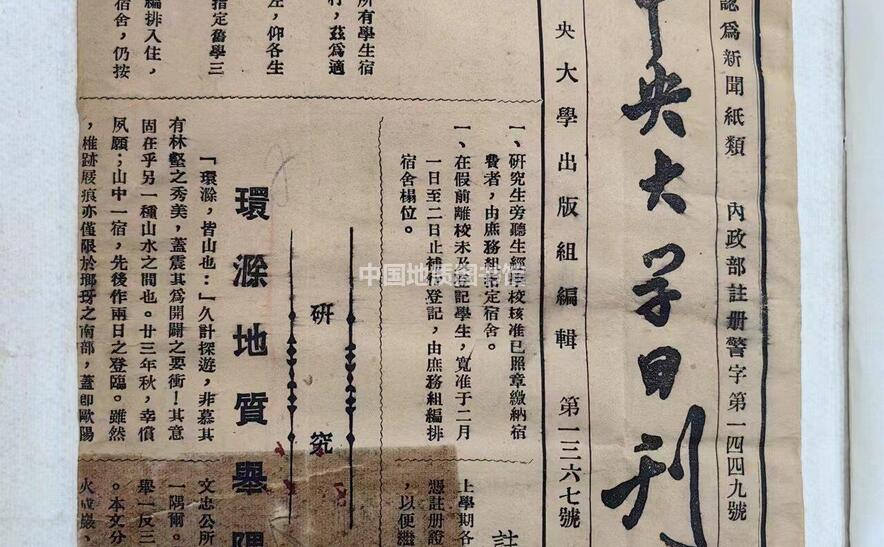 認爲新聞紙類　內政部註册警字第一四四九號
中央大學日刊
央大學出版組編輯　第一三六七號
一、研究生旁聽生經
校核准已照章繳納宿
費者，由庶務組
定宿舍。
一、在假前離校未及
登記學生，寬准于二月
一日至二日止補行登記，由庶務組編排
宿舍榻位。
所有學生宿
行，茲爲適
左，仰各生
指定舊學三
編排入住，
宿舍，仍按
上學期各
憑註册證
，以便繼
註
研究
環滁地質舉隅
「環滁，皆山也：」久計探遊，非慕其
有林壑之秀美，蓋震其爲開闢之要衝！其意
固在乎另一種山水之間也。廿三年秋，幸償
夙願；山中一宿，先後作兩日之登臨。雖然
，椎跡屐痕亦僅限於瑯玡之南部，蓋卽歐陽
文忠公所
一隅爾。
舉一反三
。本文分
火成巖、
中国地质图书馆